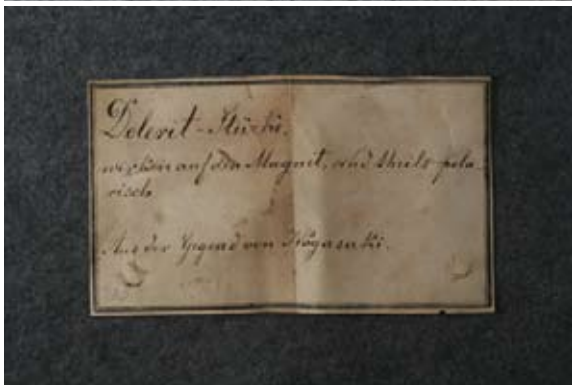 Dolerit-Stücke,
wirken auf den Magnet, sind theils pola-
risch.
Aus der Gegend von Nagasaki.